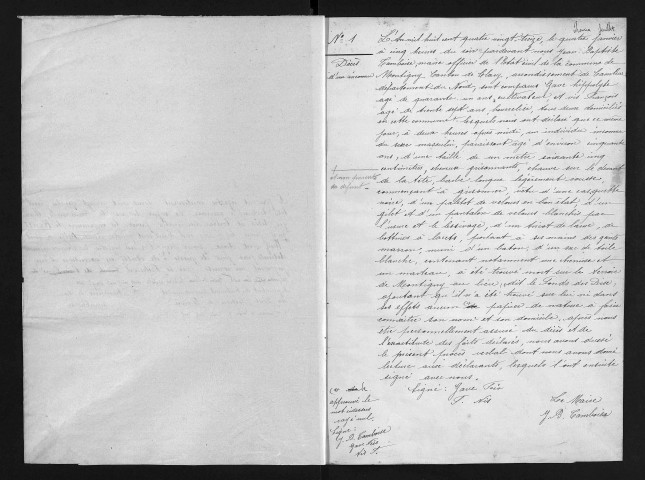 N° 1
Décès
d'un inconnu
L'an mil huit cent quatre vingt treize, le quatre
à cinq heures du soir pardevant nous Jean Baptiste
Tamboise, maire officier de l'Etat civil de la commune de
Montigny, Canton de Clary, arrondissement de Cambrai
département du Nord, sont comparus Gave hippolyte
agé de quarante un ans, cultivateur, et Nis François
agé de trente sept ans, tous deux domiciliés
en cette commune lesquels nous ont déclaré que ce même
jour, à deux heures après midi, un individu inconnu
du sexe masculin, paraissant agé d'environ cinquante
ans, d'une taille de un mètre soixante cinq
centimètres, cheveux grisonnants, chauve sur le devant
de la tête, barbe longue légèrement rousse
commençant à grisonner, vêtu d'une casquette
noire, d'un paletot de velours en bon état, d'un
gilet et d'un pantalon de velours blanchis par
l'usure et le lessivage, d'un tricot de laine, de
bottines à lacets, portant à ses mains des gants
marron, muni d'un baton, d'un sac de toile
blanche, contenant notamment une chemise et
un marteau, a été trouvé mort sur le terroir
de Montigny au lieu dit le Fonds des
ajoutant qu'il n'a été trouvé sur lui ni dans
ses effets aucun papier de nature à faire
connaître son nom et son domicile, après nous
être personnellement assuré du décès et de
l'exactitude des faits déclarés, nous avons dressé
le présent procès verbal dont nous avons donné
lecture aux déclarants, lesquels l'ont ensuite
signé avec nous.
Signé: Gave
F. Nis
Le Maire
J. B. Tamboise
approuvé le
mot
rayé nul
Signé:
J. B. Tamboise
Gave
Nis F.